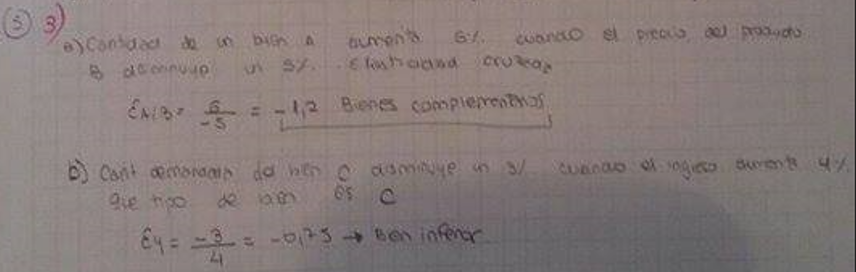 (5) 3)
a) Cantidad de un bien A aumenta 6%. cuando el precio del producto
B disminuye un 5%. Elasticidad cruzada
EA/B = 6/-5 = -1,2 Bienes complementarios
b) Cant demandada del bien C disminuye un 3% cuando el ingreso aumenta 4%
que tipo de bien es C
Ey = -3/4 = -0,75 → Bien inferior